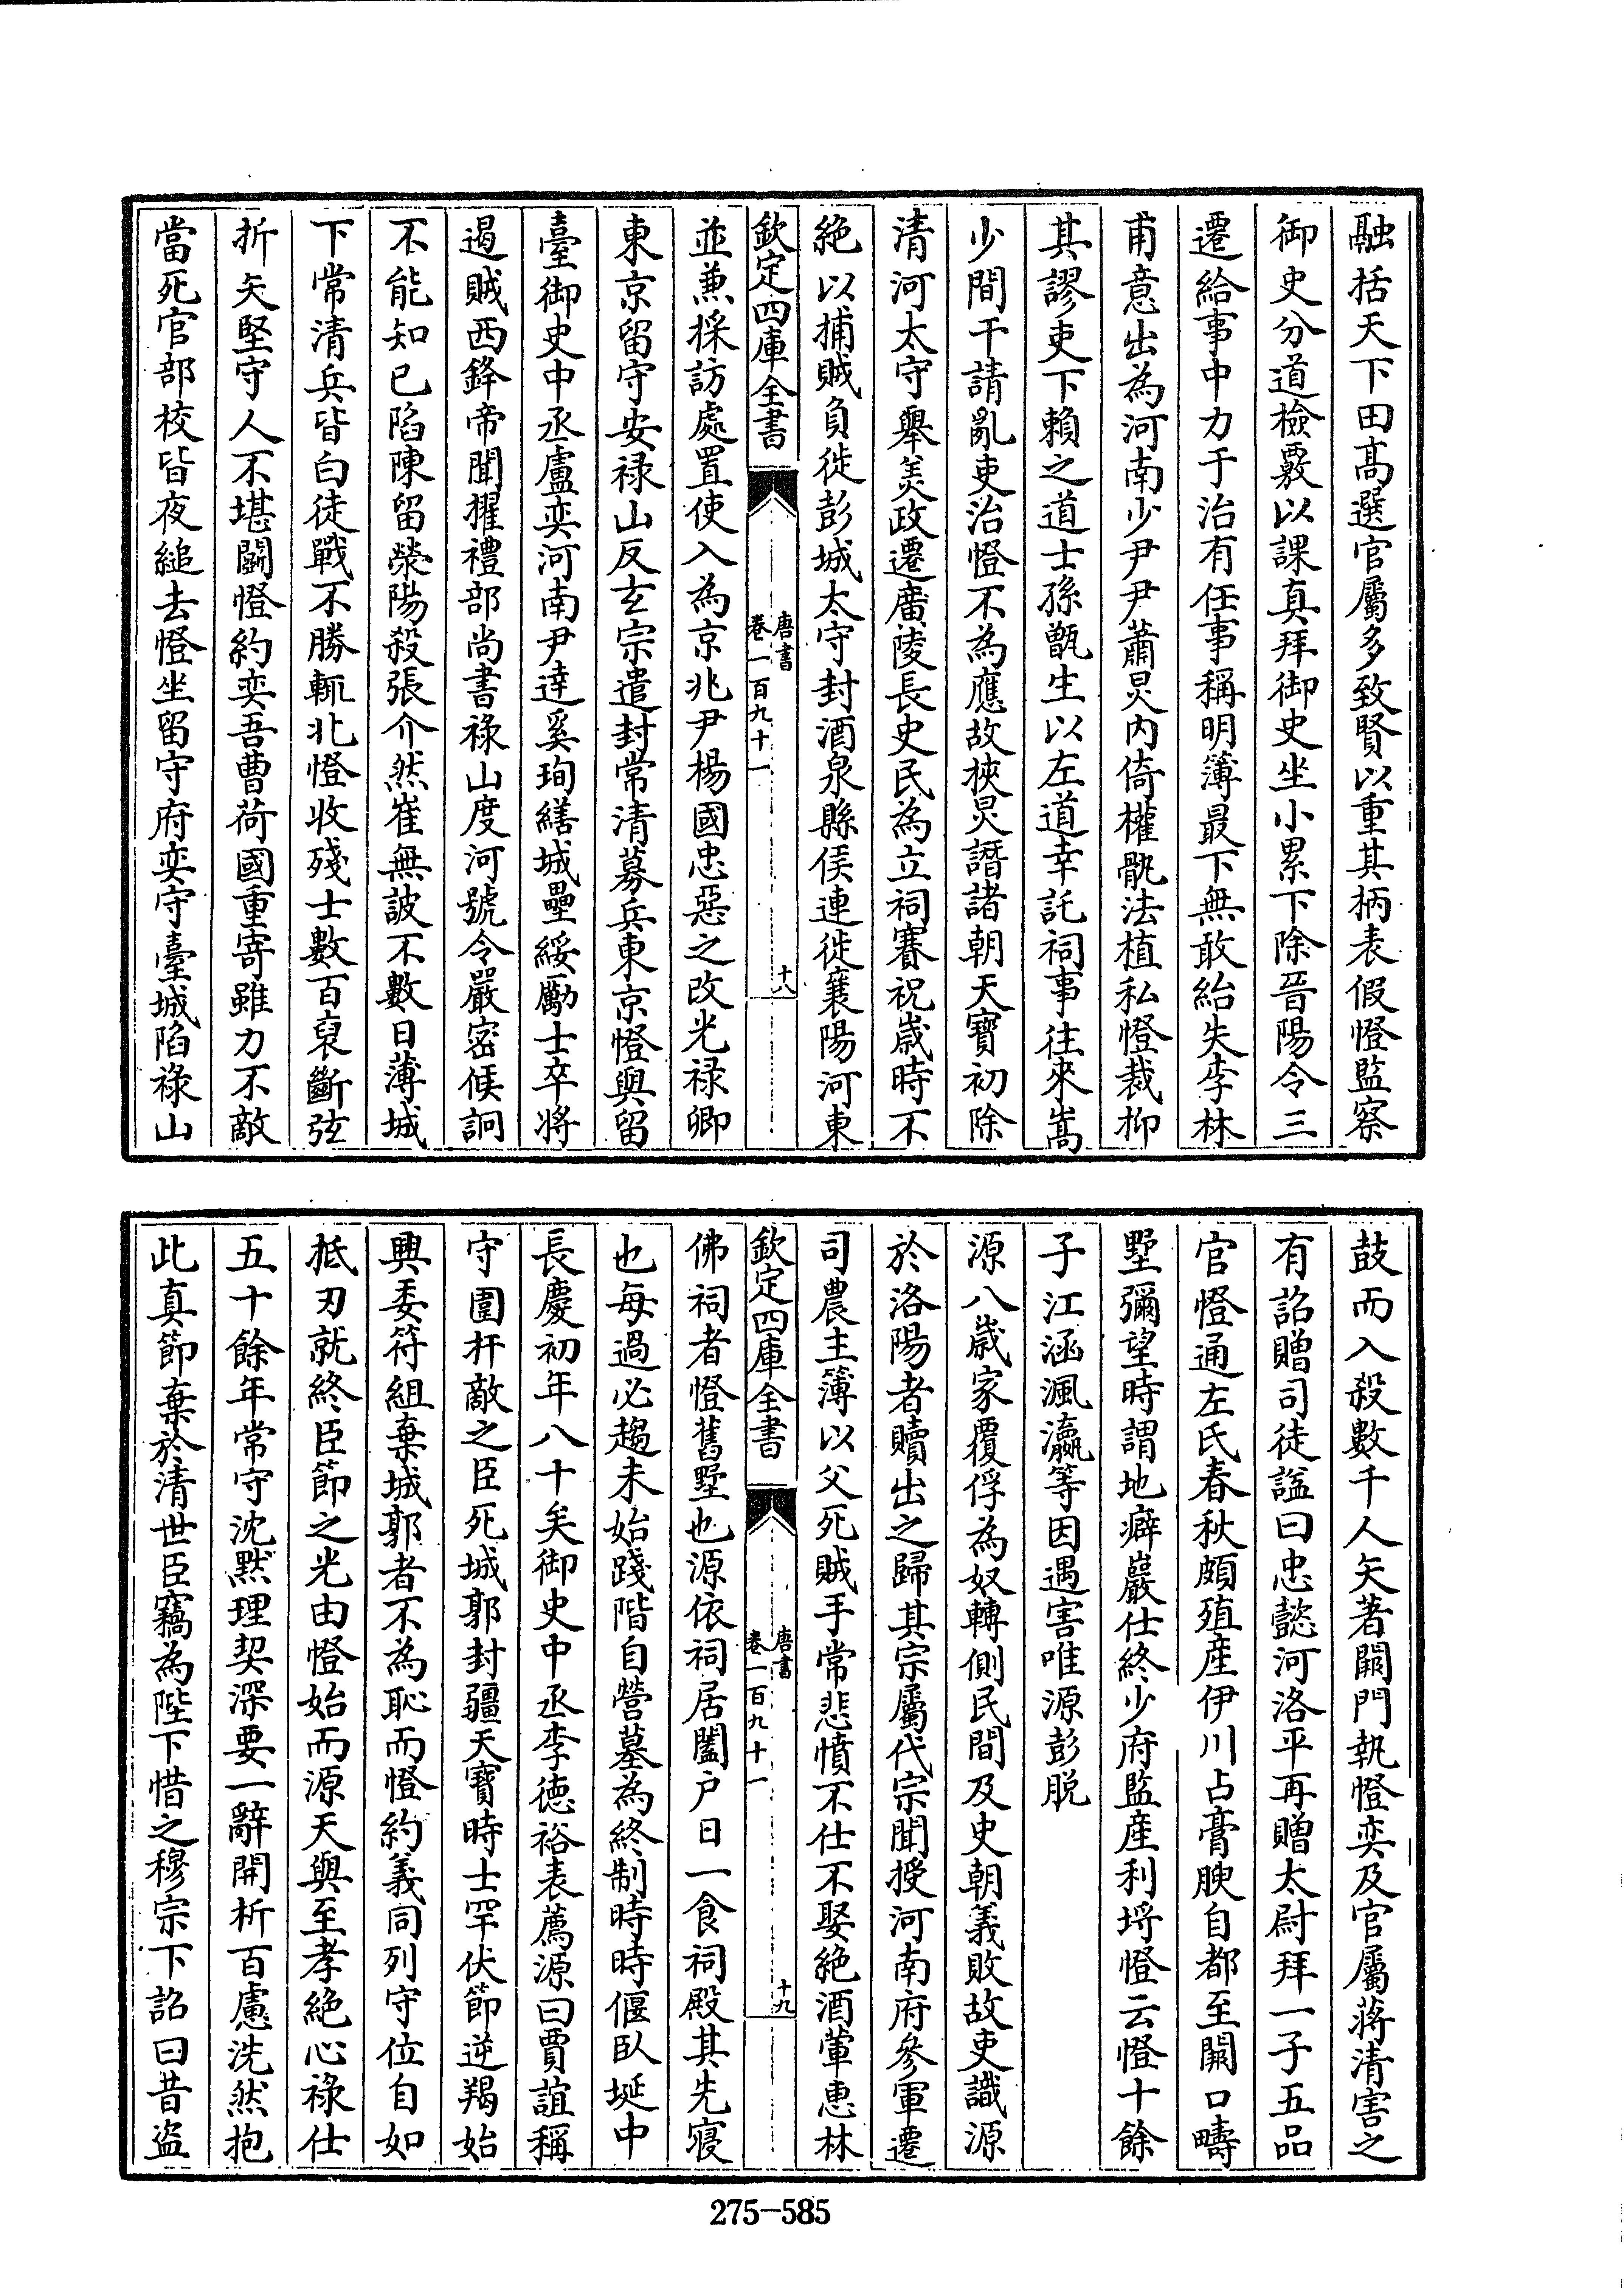 融括天下田高選官屬多致賢以重其柄表假憕監察
御史分道檢覈以課真拜御史坐小累下除晉陽令三
遷給事中力于治有任事稱明簿最下無敢紿失李林
甫意出為河南少尹尹蕭炅内倚權骫法植私憕裁抑
其謬吏下賴之道士孫甑生以左道幸託祠事往來嵩
少間干請亂吏治憕不為應故挾炅譖諸朝天寶初除
清河太守舉美政遷廣陵長史民為立祠賽祝歲時不
絶以捕賊負徙彭城太守封酒泉縣侯連徙襄陽河東
欽定四庫全書
唐書
卷一百九十一
十八
並兼採訪處置使入為京兆尹楊國忠惡之改光禄卿
東京留守安禄山反玄宗遣封常清募兵東京憕與留
臺御史中丞盧奕河南尹逹奚珣繕城壘綏勵士卒將
遏賊西鋒帝聞擢禮部尚書祿山度河號令嚴密候詗
不能知已陷陳留滎陽殺張介然崔無詖不數日薄城
下常清兵皆白徒戰不勝輒北憕收殘士數百裒斷弦
折矢堅守人不堪鬭憕約奕吾曹荷國重寄雖力不敵
當死官部校皆夜縋去憕坐留守府奕守臺城陷祿山
鼓而入殺數千人矢著闕門執憕奕及官屬蔣清害之
有詔贈司徒諡曰忠懿河洛平再贈太尉拜一子五品
官憕通左氏春秋頗殖産伊川占膏腴自都至闕口疇
墅彌望時謂地癖嚴仕終少府監産利埒憕云憕十餘
子江涵渢瀛等因遇害唯源彭脱
源八歲家覆俘為奴轉側民間及史朝義敗故吏識源
於洛陽者贖出之歸其宗屬代宗聞授河南府參軍遷
司農主簿以父死賊手常悲憤不仕不娶絶酒葷惠林
欽定四庫全書
唐書
卷一百九十一
十九
佛祠者憕舊墅也源依祠居闔户日一食祠殿其先寢
也每過必趨未始踐階自營墓為終制時時偃臥埏中
長慶初年八十矣御史中丞李德裕表薦源曰賈誼稱
守圉扞敵之臣死城郭封疆天寶時士罕伏節逆羯始
興委符組棄城郭者不為恥而憕約義同列守位自如
抵刃就終臣節之光由憕始而源天與至孝絶心祿仕
五十餘年常守沈默理契深要一辭開析百慮洗然抱
此真節棄於清世臣竊為陛下惜之穆宗下詔曰昔盜
275-585